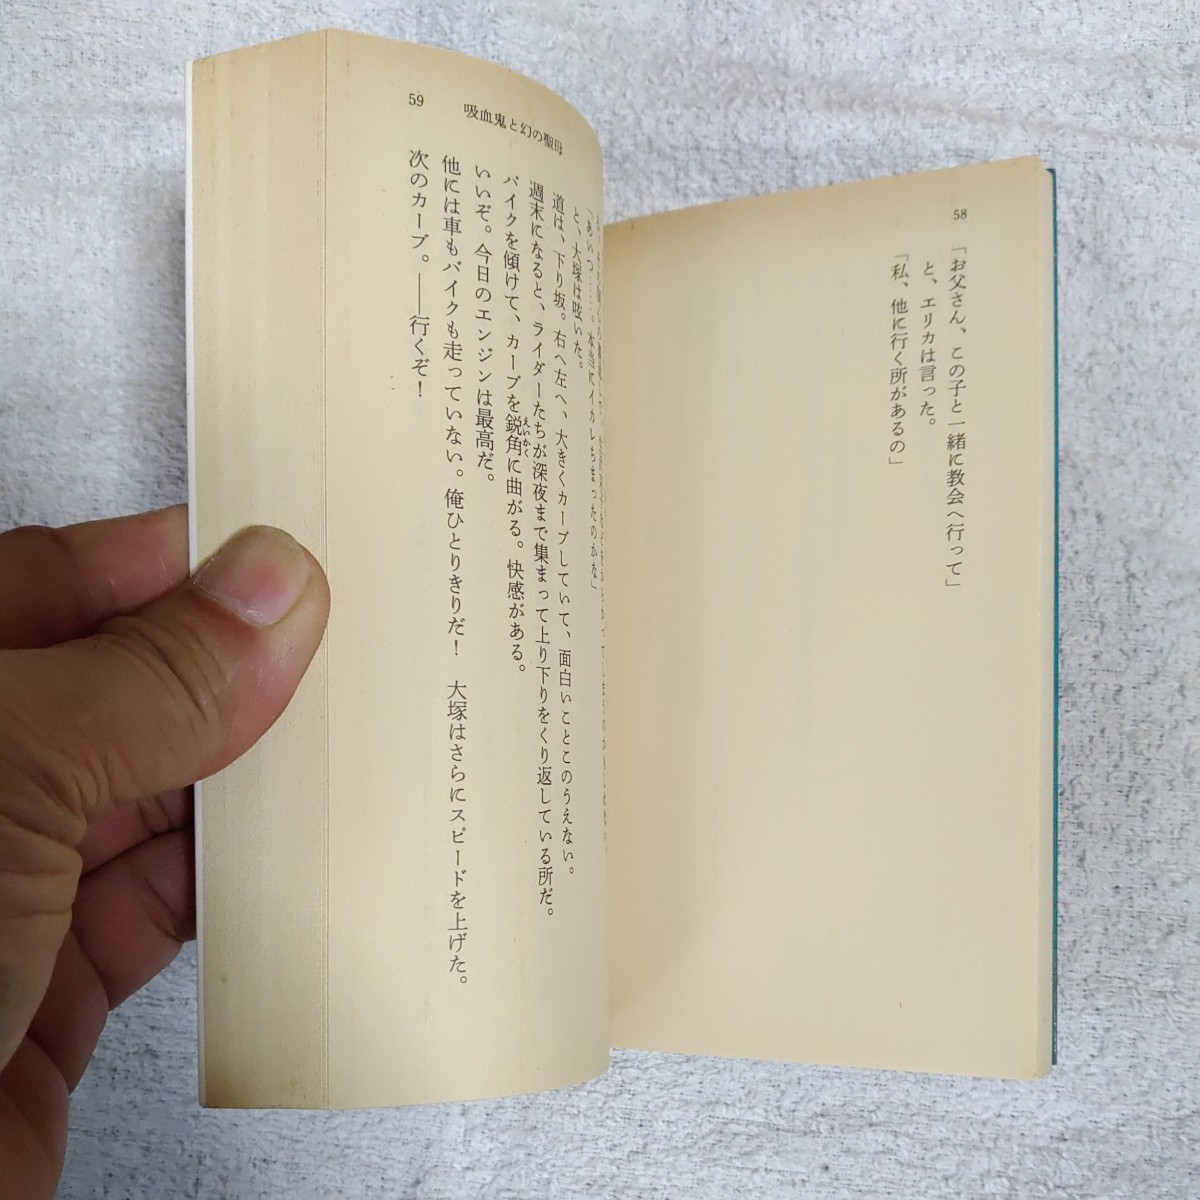 58
「お父さん、この子と一緒に教会へ行って」
と、エリカは言った。
「私、他に行く所があるの」
59
吸血鬼と幻の聖母
「あいつ……。本当にイカレちまったのかな」
と、大塚は呟いた。
道は、下り坂。右へ左へ、大きくカーブしていて、面白いことこのうえない。
週末になると、ライダーたちが深夜まで集まって上り下りをくり返している所だ。
バイクを傾けて、カーブを鋭角に曲がる。快感がある。
えいかく
いいぞ。今日のエンジンは最高だ。
他には車もバイクも走っていない。俺ひとりきりだ！　大塚はさらにスピードを上げた。
次のカーブ。――行くぞ！